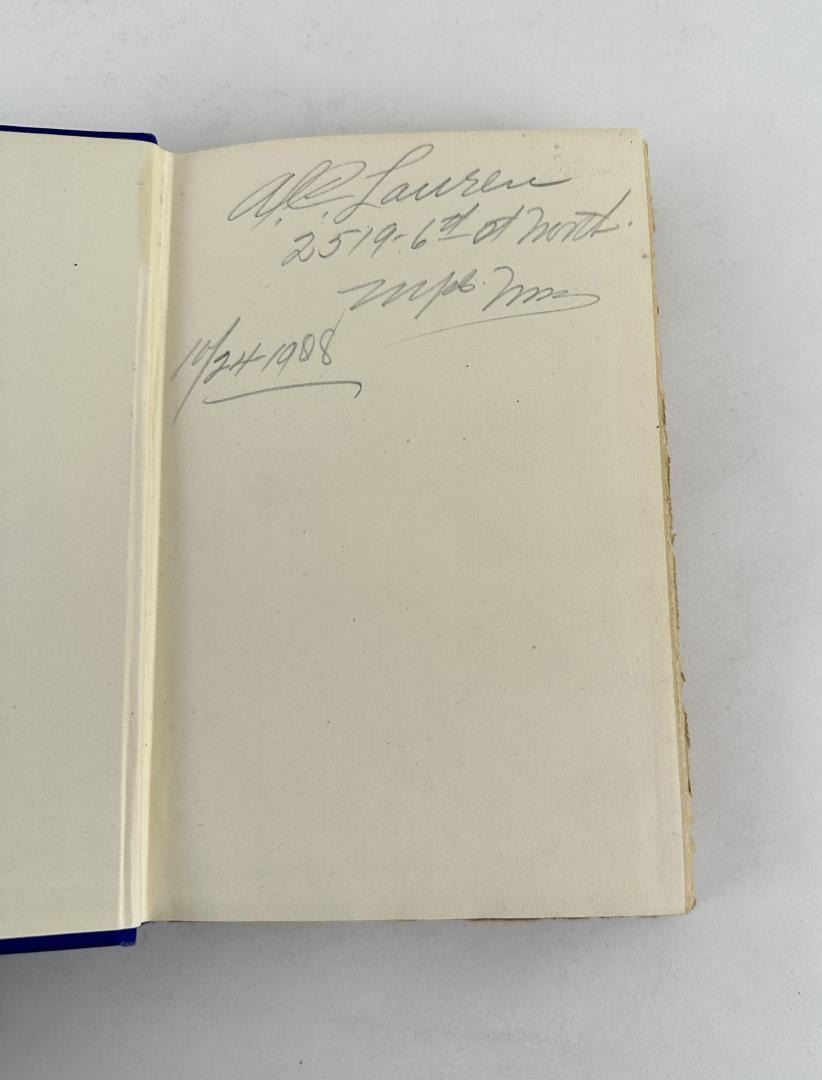 A.C. Lauren
2519-6th St North.
Mpls. Minn
10/24-1908